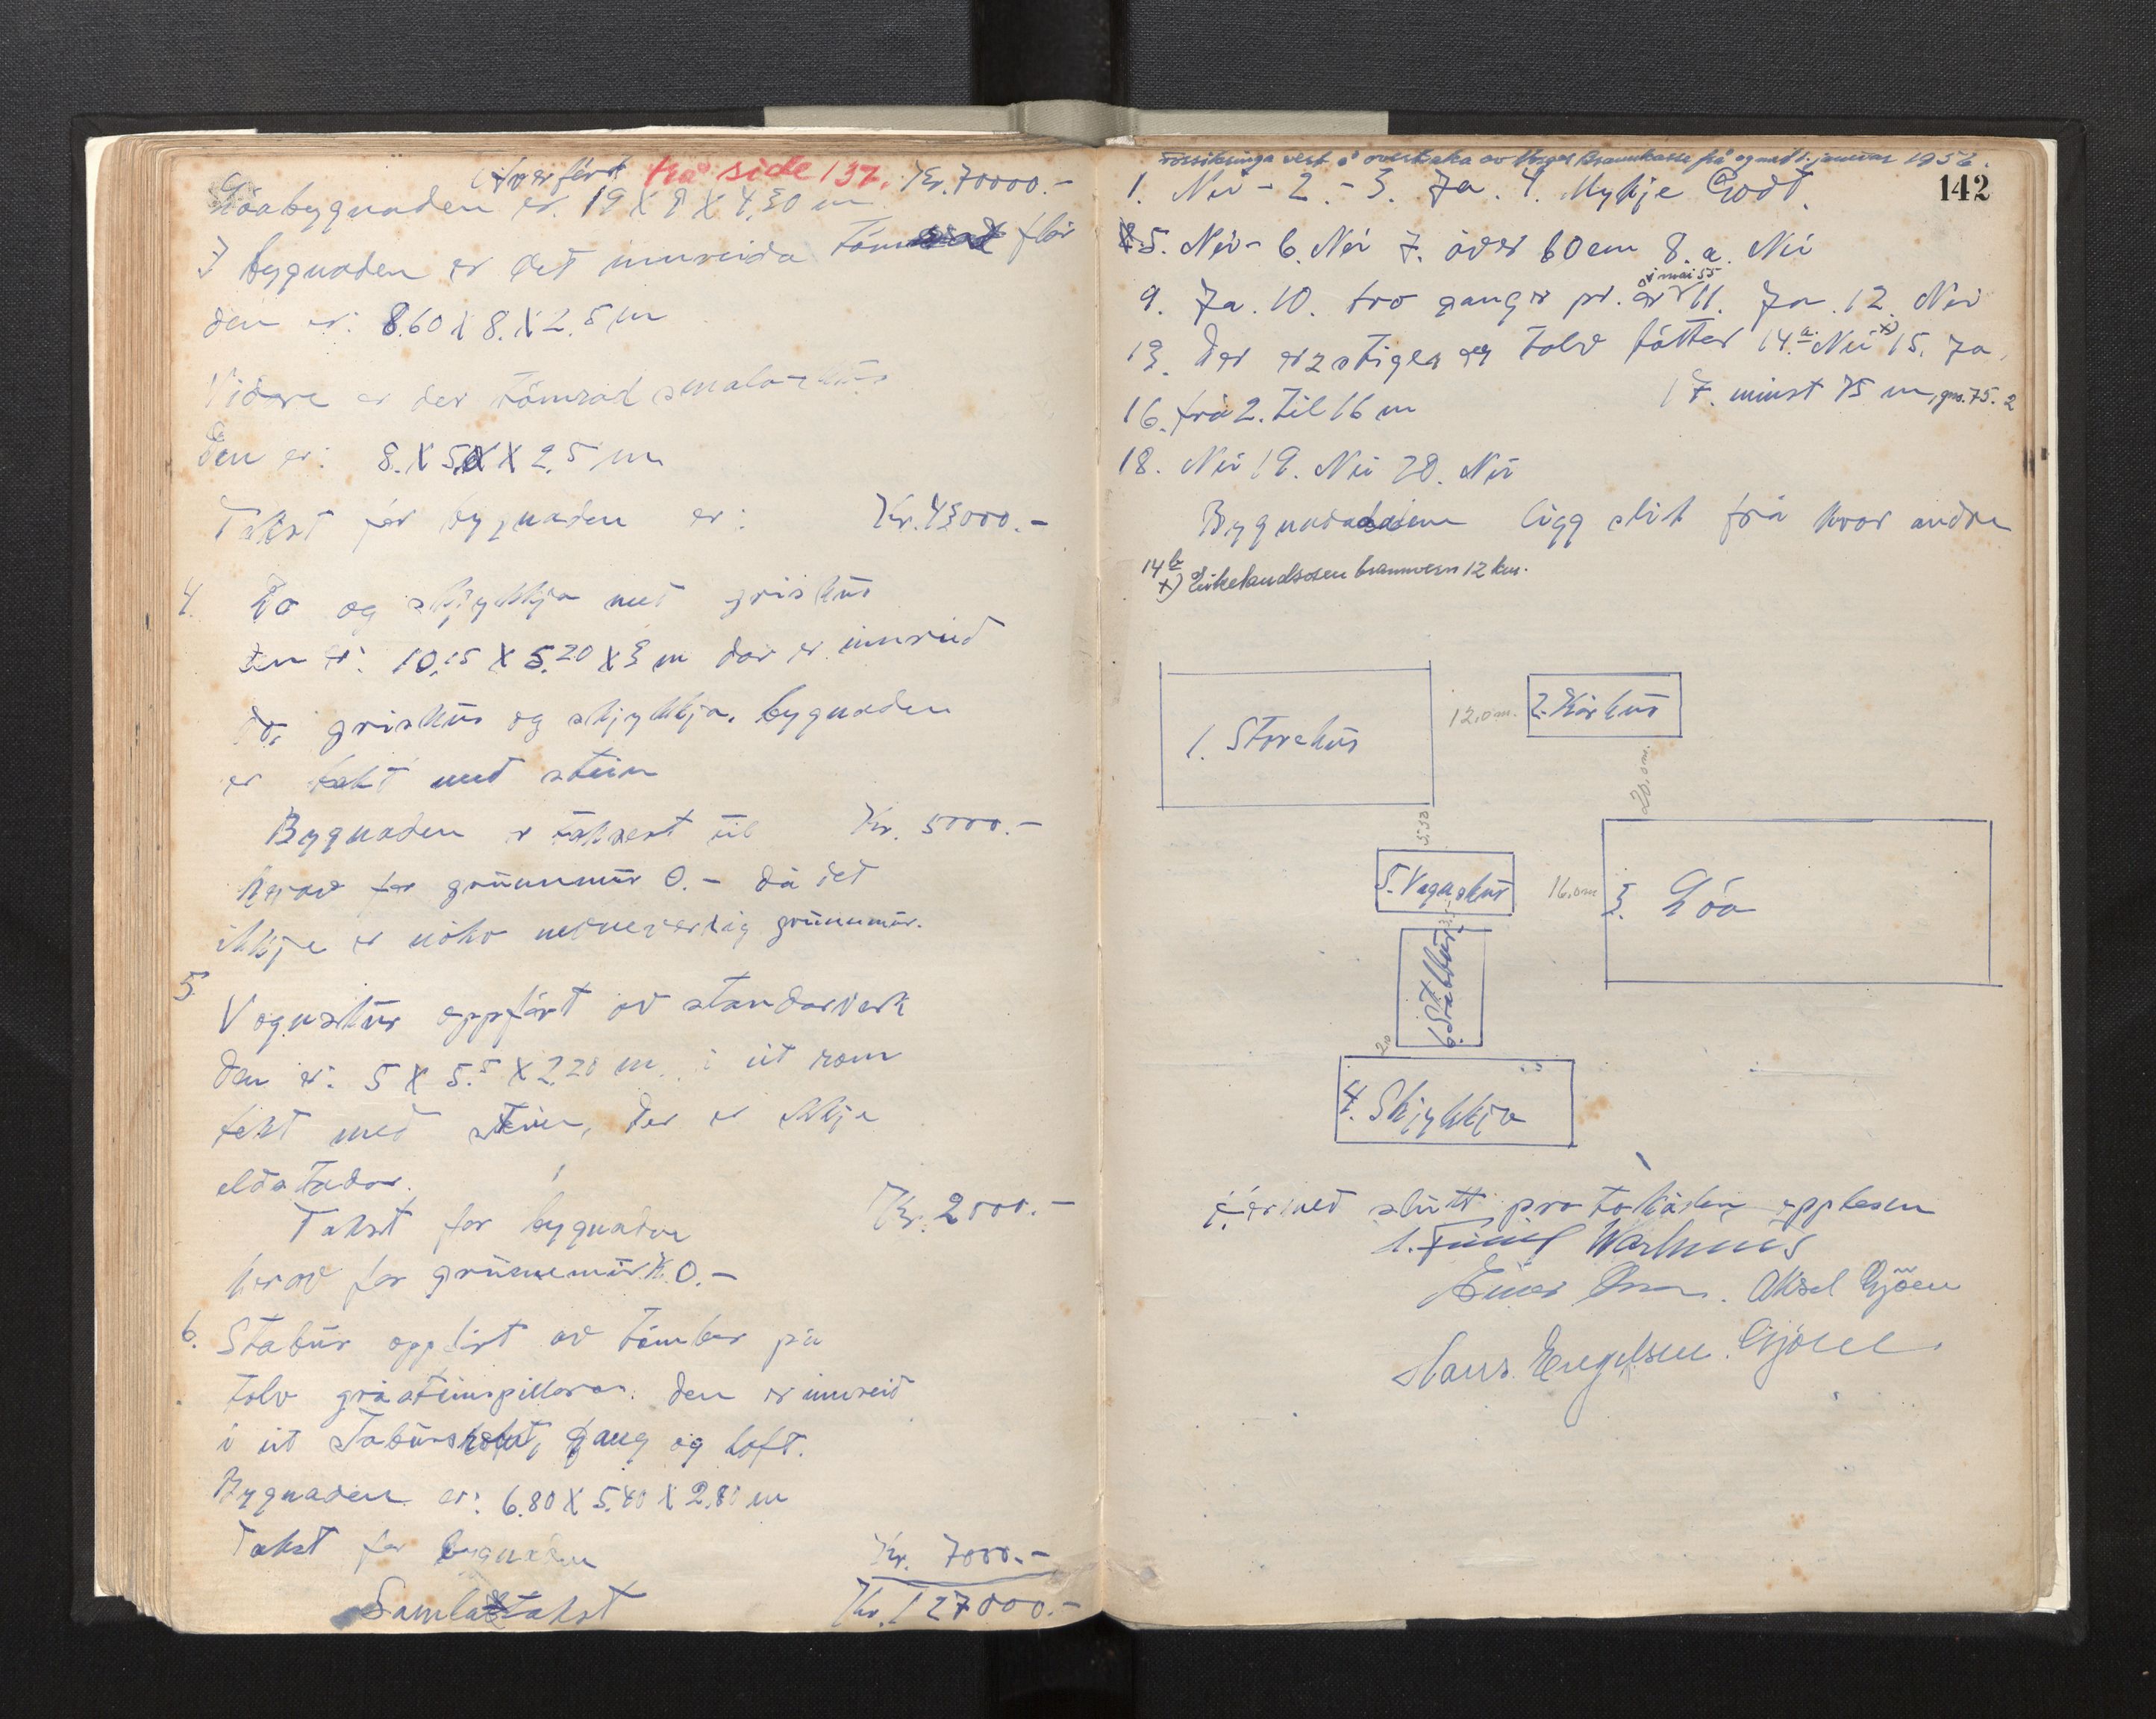 Overført frå side 137. Kr. 70000.-
Löabygnaden er. 19 X 8 X 4,30 m
I bygnaden er det innreida flör
den er: 8.60 X 8. X 2.5 m
Vidare er der tömrad smalahus
Den er: 8. X 5. X 2.5 m
Takst for bygnaden er: Kr. 43000.-
4. Lö og skjykkja med grishus
den er: 10,15 X 5.20 X 3 m dar er innreid
do, grishus og skjykkja. bygnaden
er tekt med stein
Bygnaden er taksert til Kr. 5000.-
herav for grunnmur 0.- då det
ikkje er noko nemneverdig grunnmur.
5. Vognskur oppfört av standarverk
den er: 5 X 5.5 X 2.20 m i eit rom
tekt med stein, der er ikkje
eldstadar.
Takst for bygnaden Kr. 2000.-
herav for grunnemur K. 0.-
6. Stabur oppfört av tömber på
tolv gråsteinspillarar. den er innreid
i eit stabursromt, gang og loft.
Bygnaden er: 6.80 X 5.40 X 2.80 m
Takst for bygnaden Kr. 7000.-
Samla takst Kr. 127000.-
Forsikringa vert å overtaka av Norges Brannkasse frå og med 1. januar 1956.
142
1. Nei - 2. - 3. Ja. 4. Mykje Godt.
5. Nei - 6. Nei 7. över 60 cm 8. a. Nei
i mai 55
9. Ja. 10. tro ganger pr. år 11. Ja. 12. Nei
13. Der er 2 stiger er tolv fötter 14.a. Nei x) 15. Ja.
16. frå 2. til 16 m 17. minst 75 m, gno. 75. 2
18. Nei 19. Nei 20. Nei
Bygnadadene ligg slik frå kvar andre
14 b
x) Eikelandsosen brannvern 12 km.
1. Storehus
12,0 m.
2. Kårhus
20,0 m.
5.50
5. Vognskur
16,0 m
3. Löa
6. Stabbur
2.0
4. Skjykkja
slutt protokolen opplesen
Aksel Gjöen
Hans Engelsen Gjöen